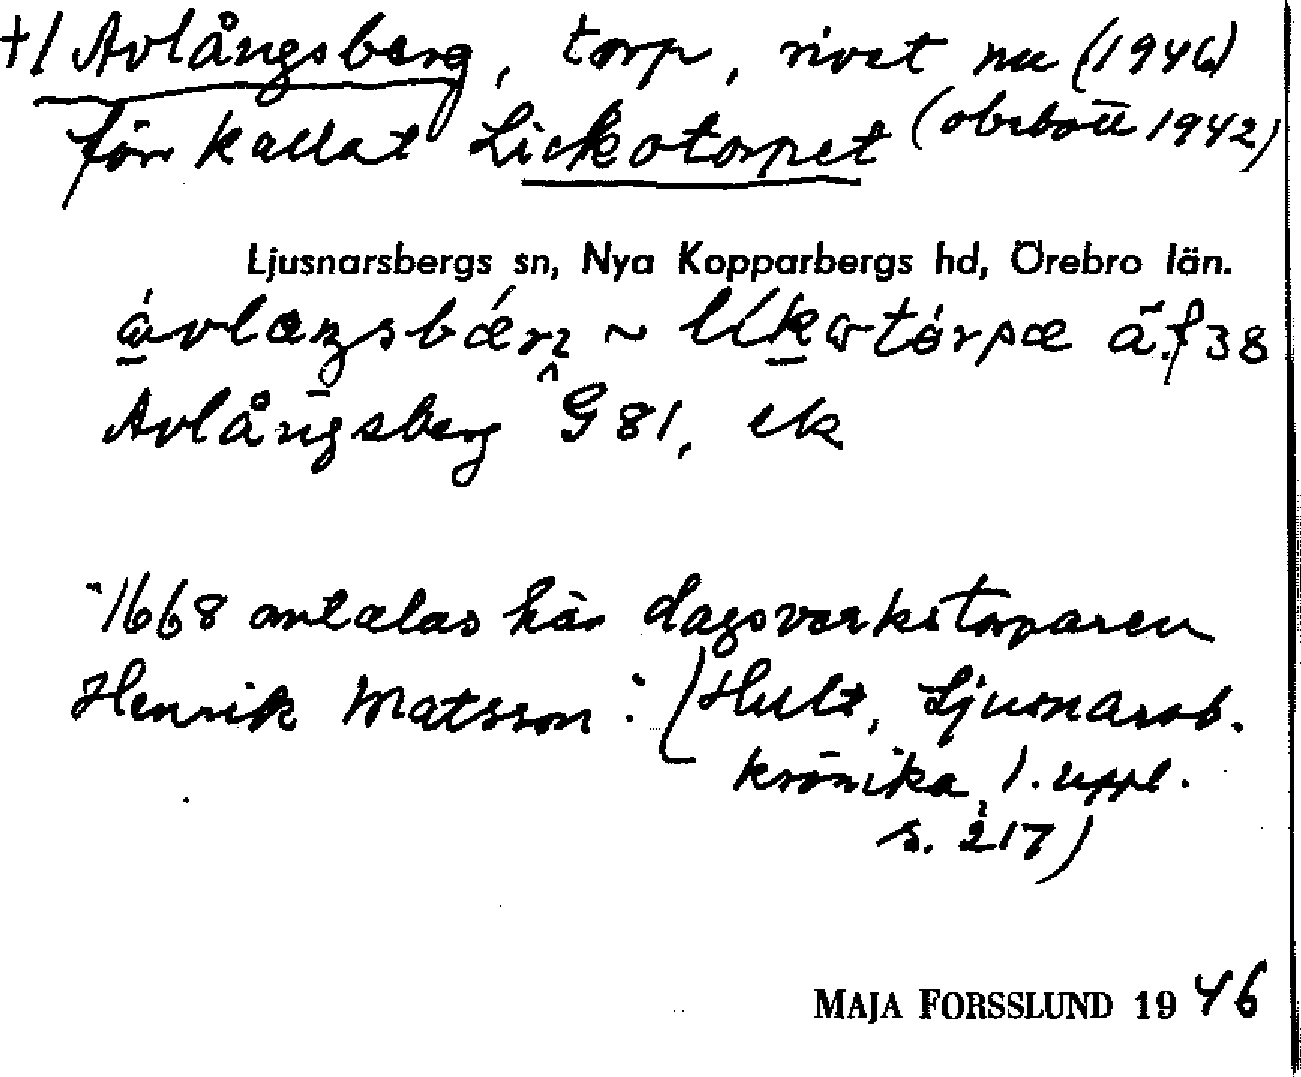 †/ Avlångsberg, torp, rivet nu (1946)
förr kallat Lickotorpet (obebott 1942)
Ljusnarsbergs sn, Nya Kopparbergs hd, Örebro län.
ä.f 38
Avlångsberg G 81, ek
"1668 omtalas här dagsverkstorparen
Henrik Matsson": (Hult, Ljusnarsb.
krönika, 1. uppl.
s. 217)
MAJA FORSSLUND 19 46